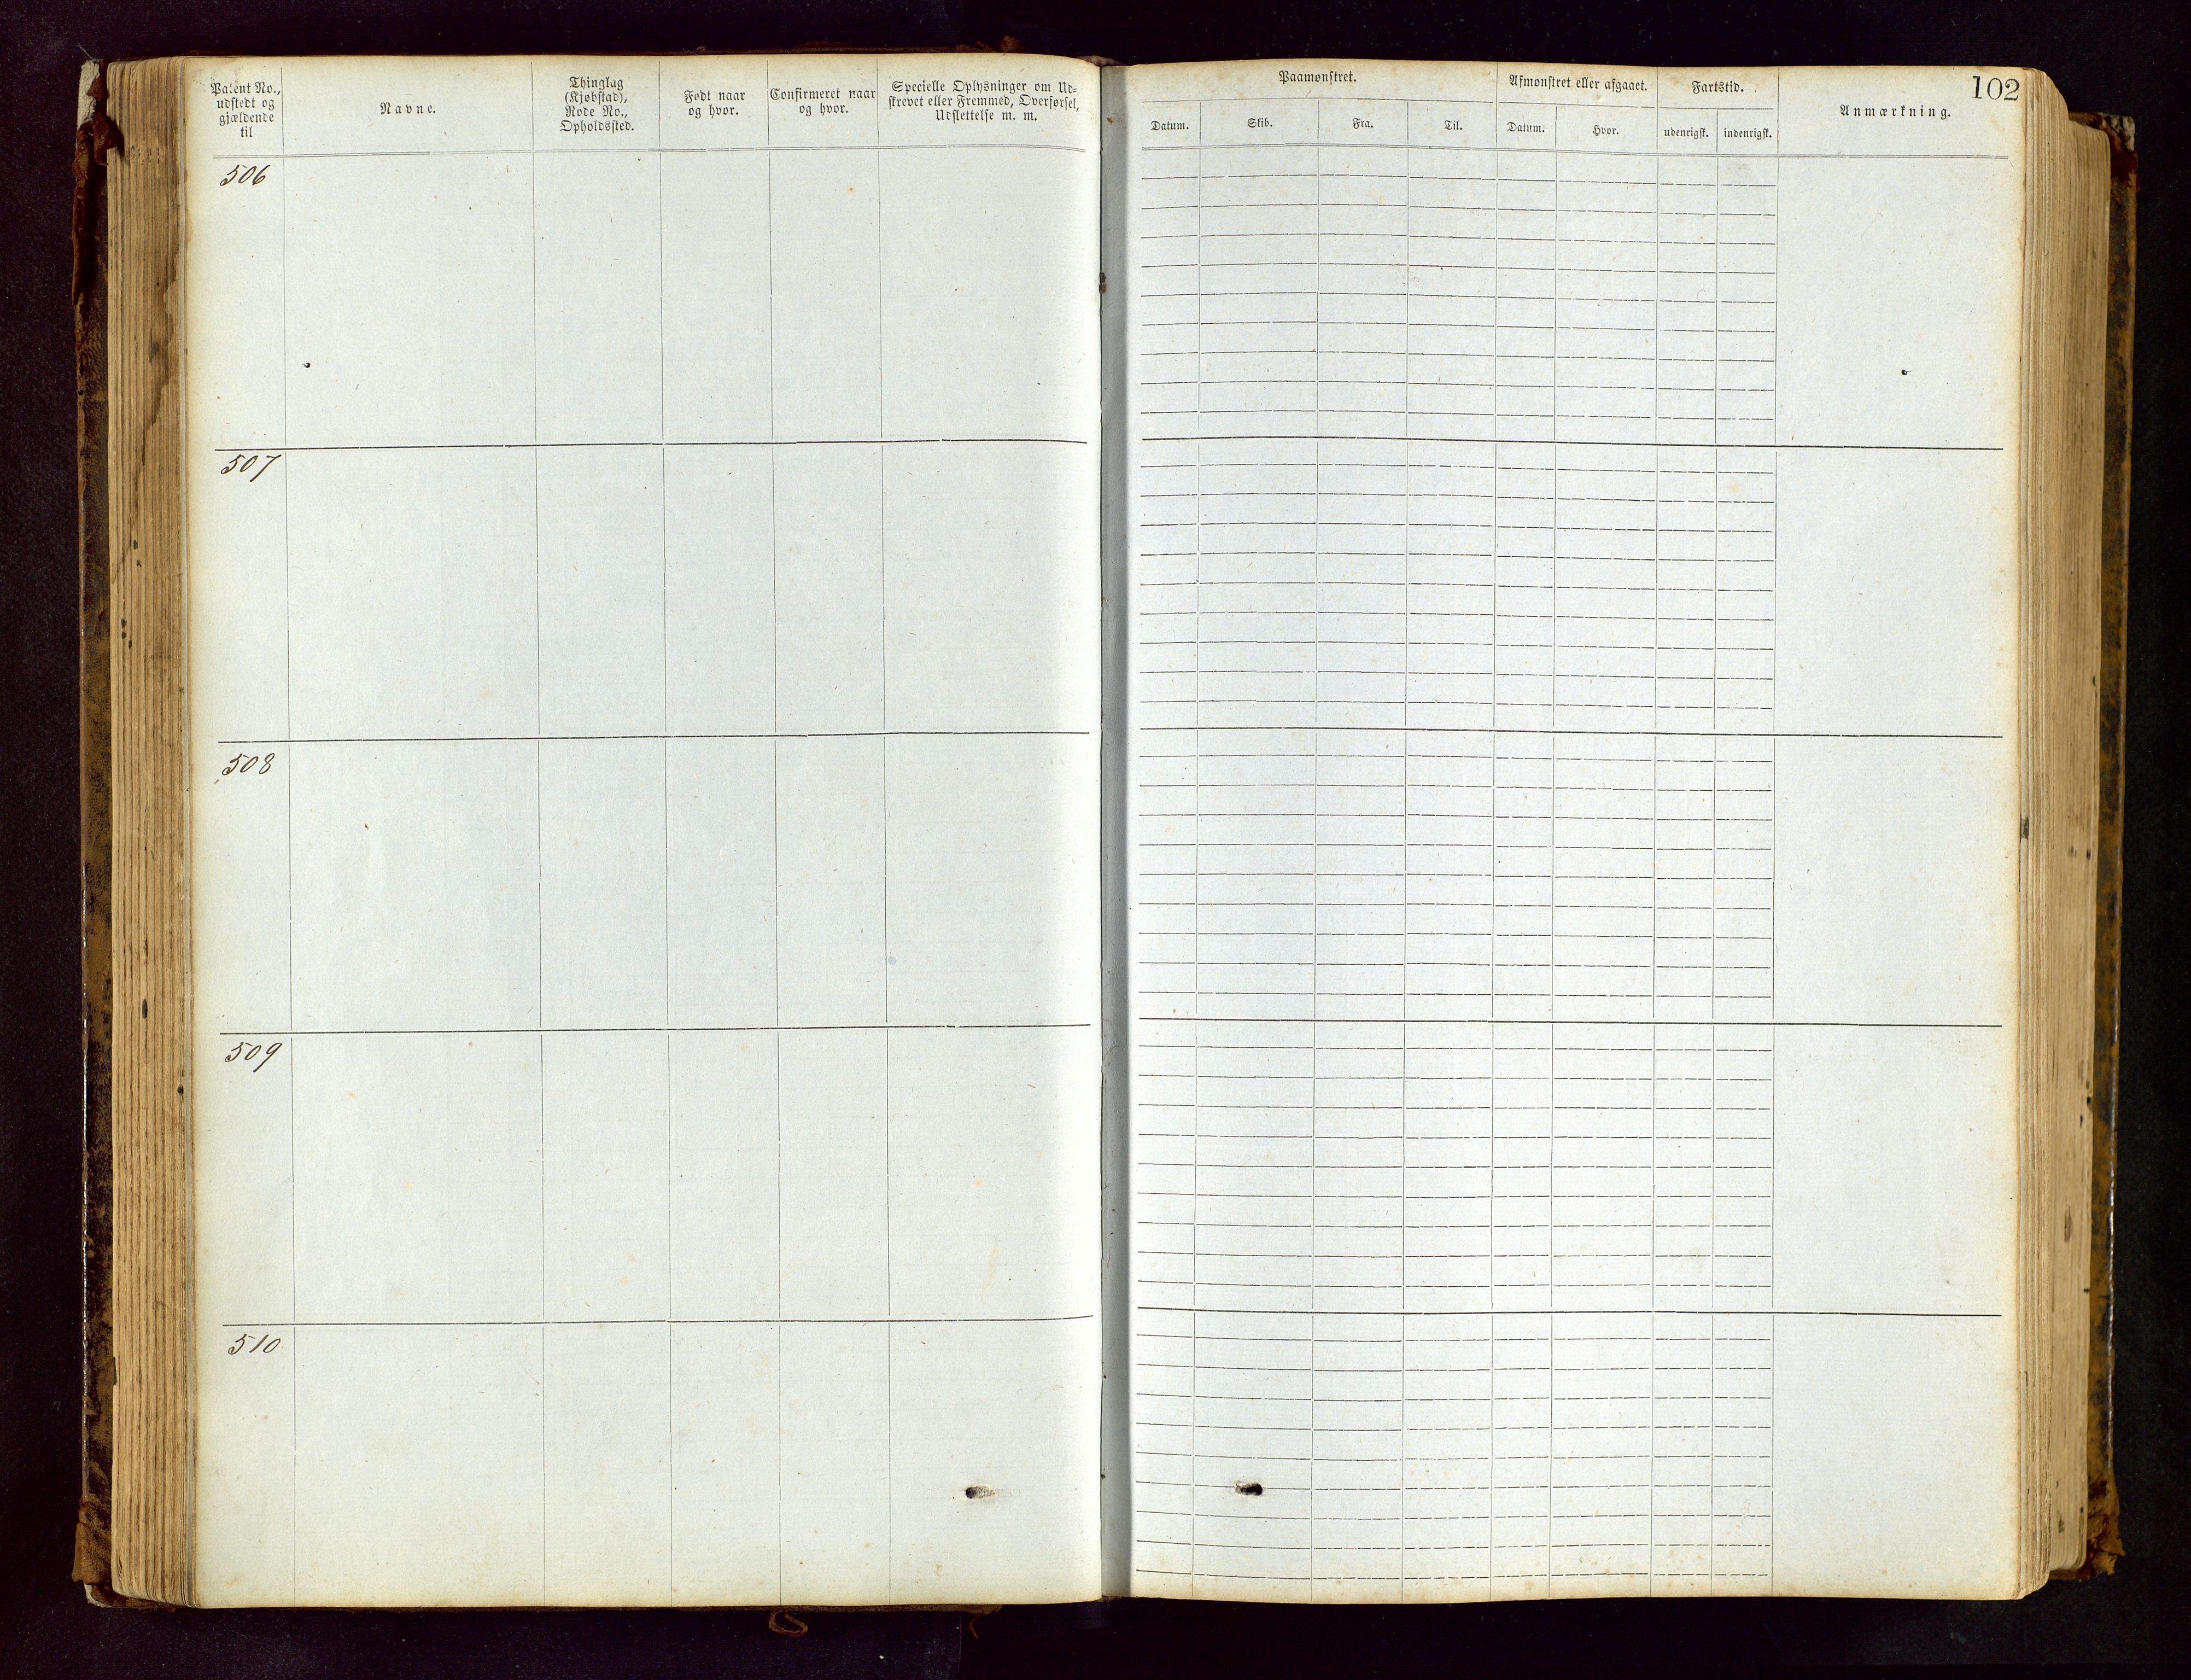 Patent No.,
udstedt og
gjældende
til
Navne.
Thinglag
(Kjøbstad),
Rode No.,
Opholdssted.
Født naar
og hvor.
Confirmeret naar
og hvor.
Specielle Oplysninger om Ud-
skrevet eller Fremmed, Overførsel,
Udslettelse m. m.
506
507
508
509
510
Paamønstret.
Afmønstret eller afgaaet.
Fartstid.
102
Datum.
Skib.
Fra.
Til.
Datum.
Hvor.
udenrigsk.
indenrigsk.
Anmærkning.